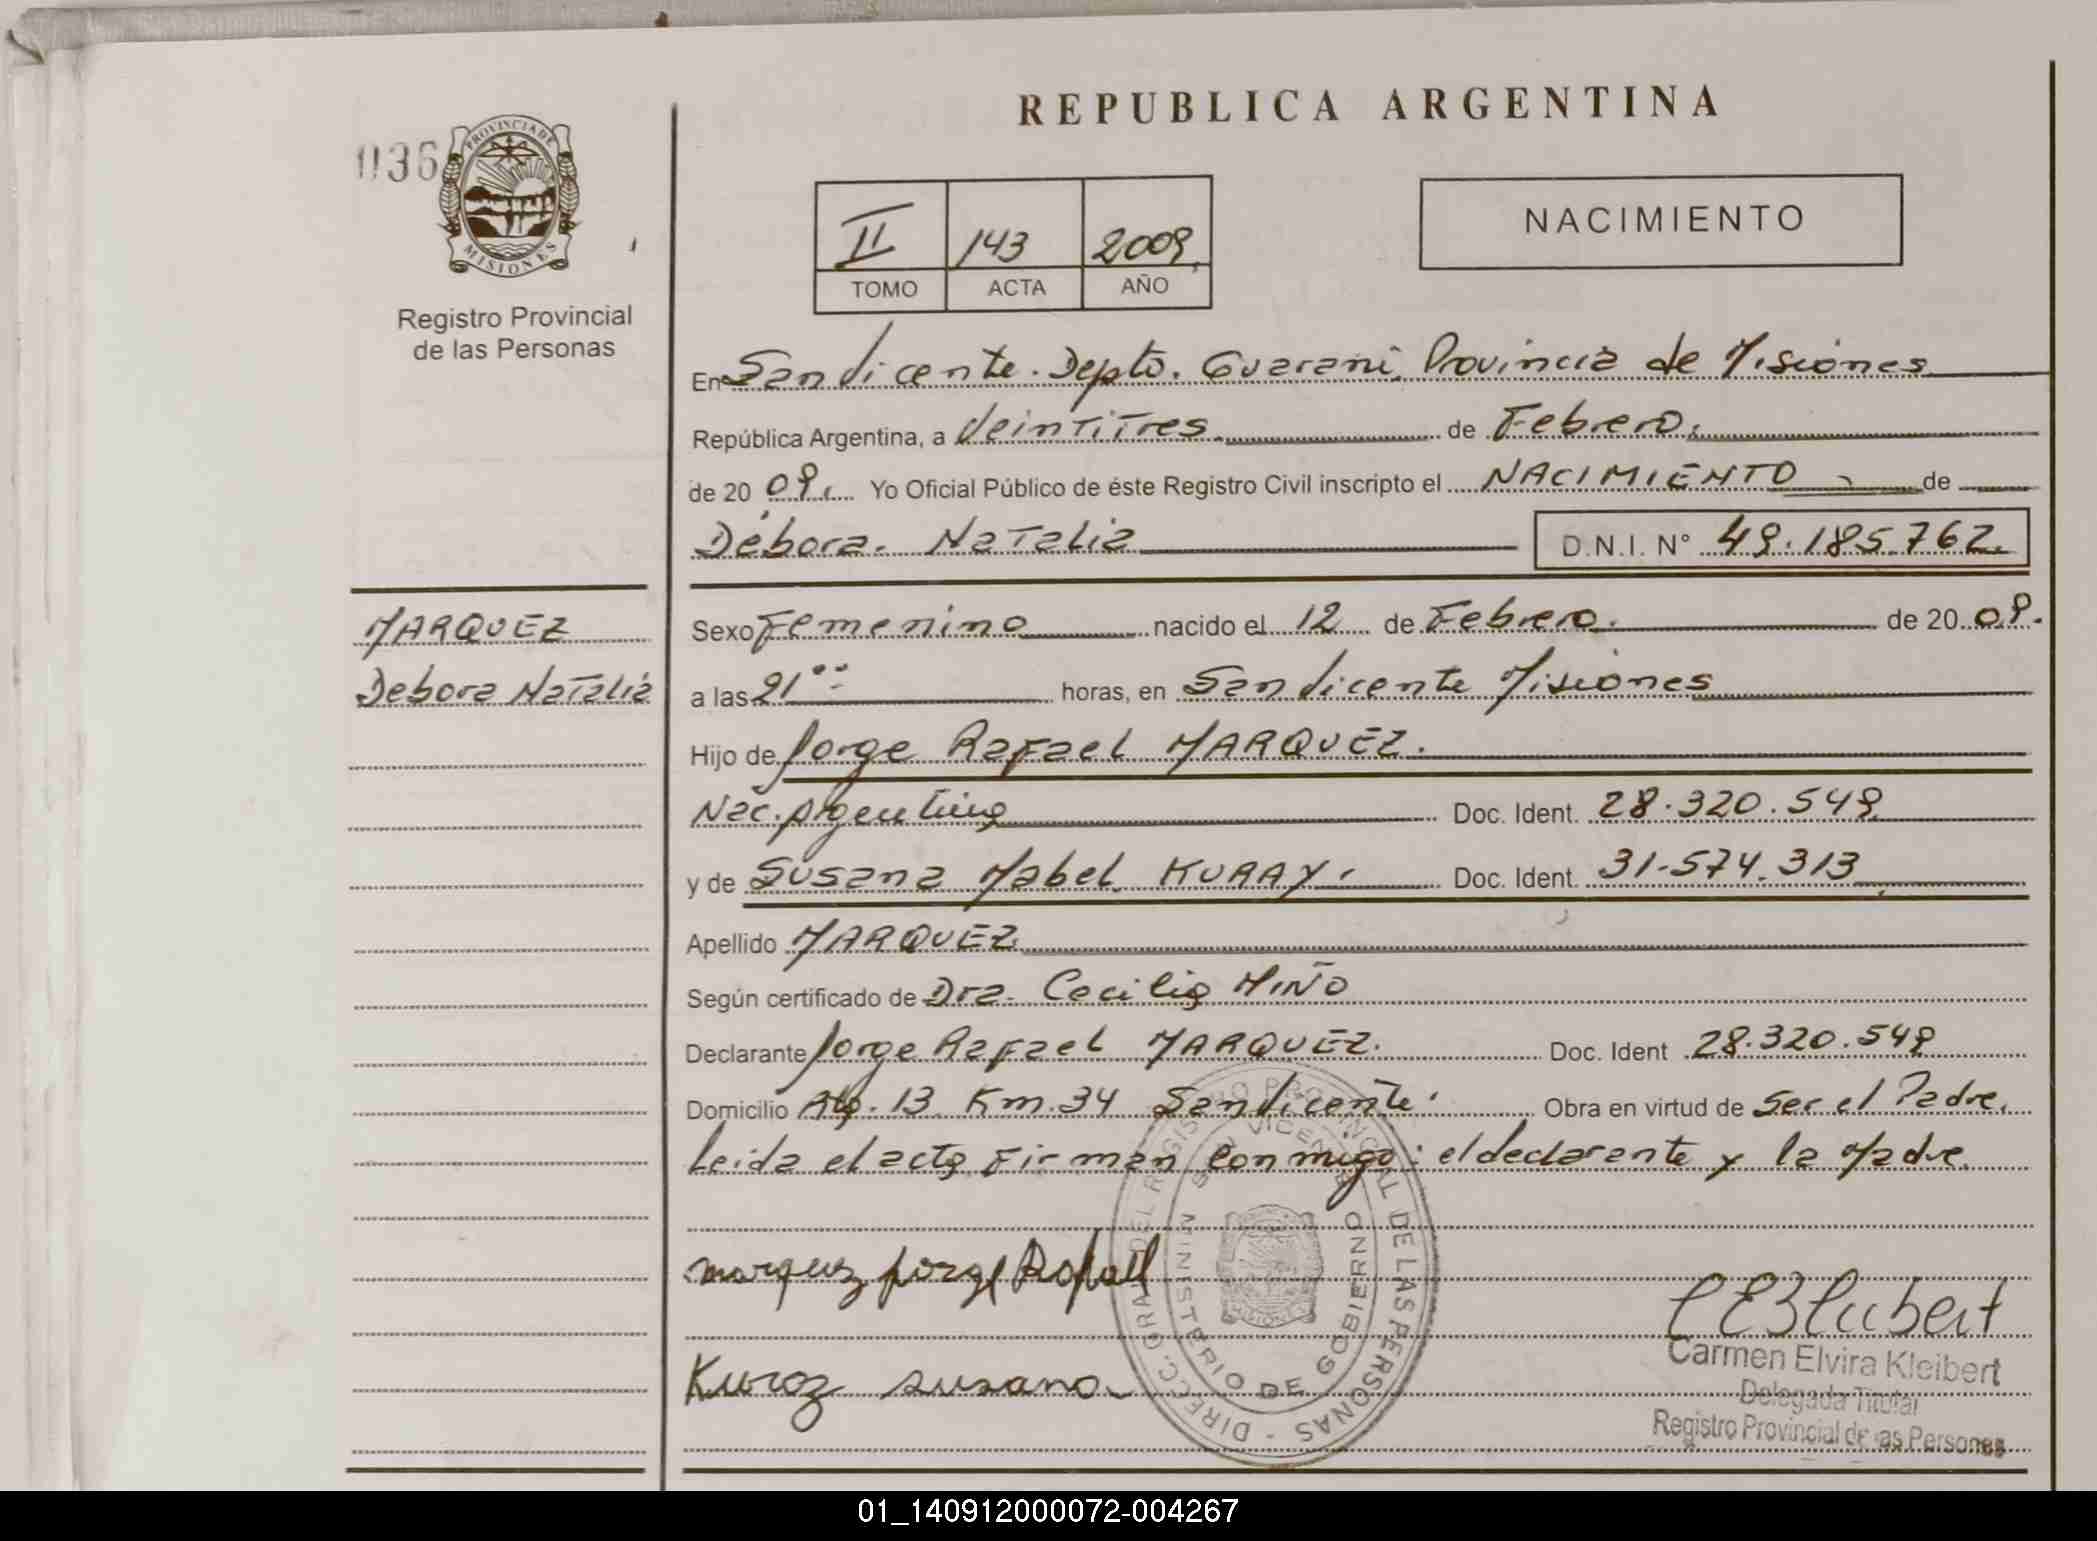 REPUBLICA ARGENTINA
036
PROVINCIA DE
MISIONES
Registro Provincial
de las Personas
II 143 2009
TOMO ACTA AÑO
NACIMIENTO
En San Vicente. Depto. Guarani, Provincia de Misiones
República Argentina, a Veintitres de Febrero.
de 20 09. Yo Oficial Público de éste Registro Civil inscripto el NACIMIENTO de
Débora Natalia D.N.I. N° 49.185.762.
MARQUEZ
Debora Natalia
Sexo Femenino nacido el 12 de Febrero. de 20 09.
a las 21 horas, en San Vicente Misiones
Hijo de Jorge Rafael MARQUEZ.
Nac. Argentina Doc. Ident. 28.320.549
y de Susana Mabel Doc. Ident. 31.574.313
Apellido MARQUEZ
Según certificado de Dra. Cecilia MIÑO
Declarante Jorge Rafael MARQUEZ. Doc. Ident 28.320.549
Domicilio 13 Km. 34 San Vicente. Obra en virtud de Ser el Padre.
Leida el acta Firman Conmigo: el declarante y la Madre.
DIRECC. GRAL. DEL REGISTRO PROVINCIAL DE LAS PERSONAS
SAN VICENTE
MINISTERIO DE GOBIERNO
marquez jorge Rafael
Susana
Carmen Elvira Kleibert
Delegada Titular
Registro Provincial de las Personas
01_140912000072-004267